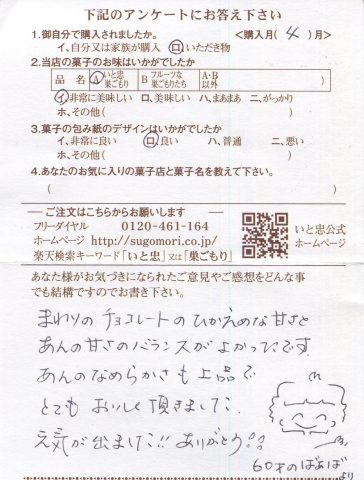 下記のアンケートにお答え下さい
1.御自分で購入されましたか。 <購入月( 4 )月>
イ、自分又は家族が購入 ロ、いただき物
2.当店の菓子のお味はいかがでしたか
品 名 A いと忠巣ごもり B フルーツな巣ごもりたち A・B以外
イ、非常に美味しい ロ、美味しい ハ、まあまあ ニ、がっかり
ホ、その他( )
3.菓子の包み紙のデザインはいかがでしたか
イ、非常に良い ロ、良い ハ、普通 ニ、悪い
ホ、その他( )
4.あなたのお気に入りの菓子店と菓子名を教えて下さい。
( )
ご注文はこちらからお願いします
フリーダイヤル 0120-461-164
ホームページ http://sugomori.co.jp/
楽天検索キーワード「いと忠」又は「巣ごもり」
いと忠公式
ホームページ
あなた様がお気づきになられたご意見やご感想をどんな事
でも結構ですのでお書き下さい。
まわりのチョコレートのひかえめな甘さと
あんの甘さのバランスがよかったです
あんのなめらかさも上品で
とてもおいしく頂きました。
元気が出ました!! ありがとう!!
60才のばぁばより